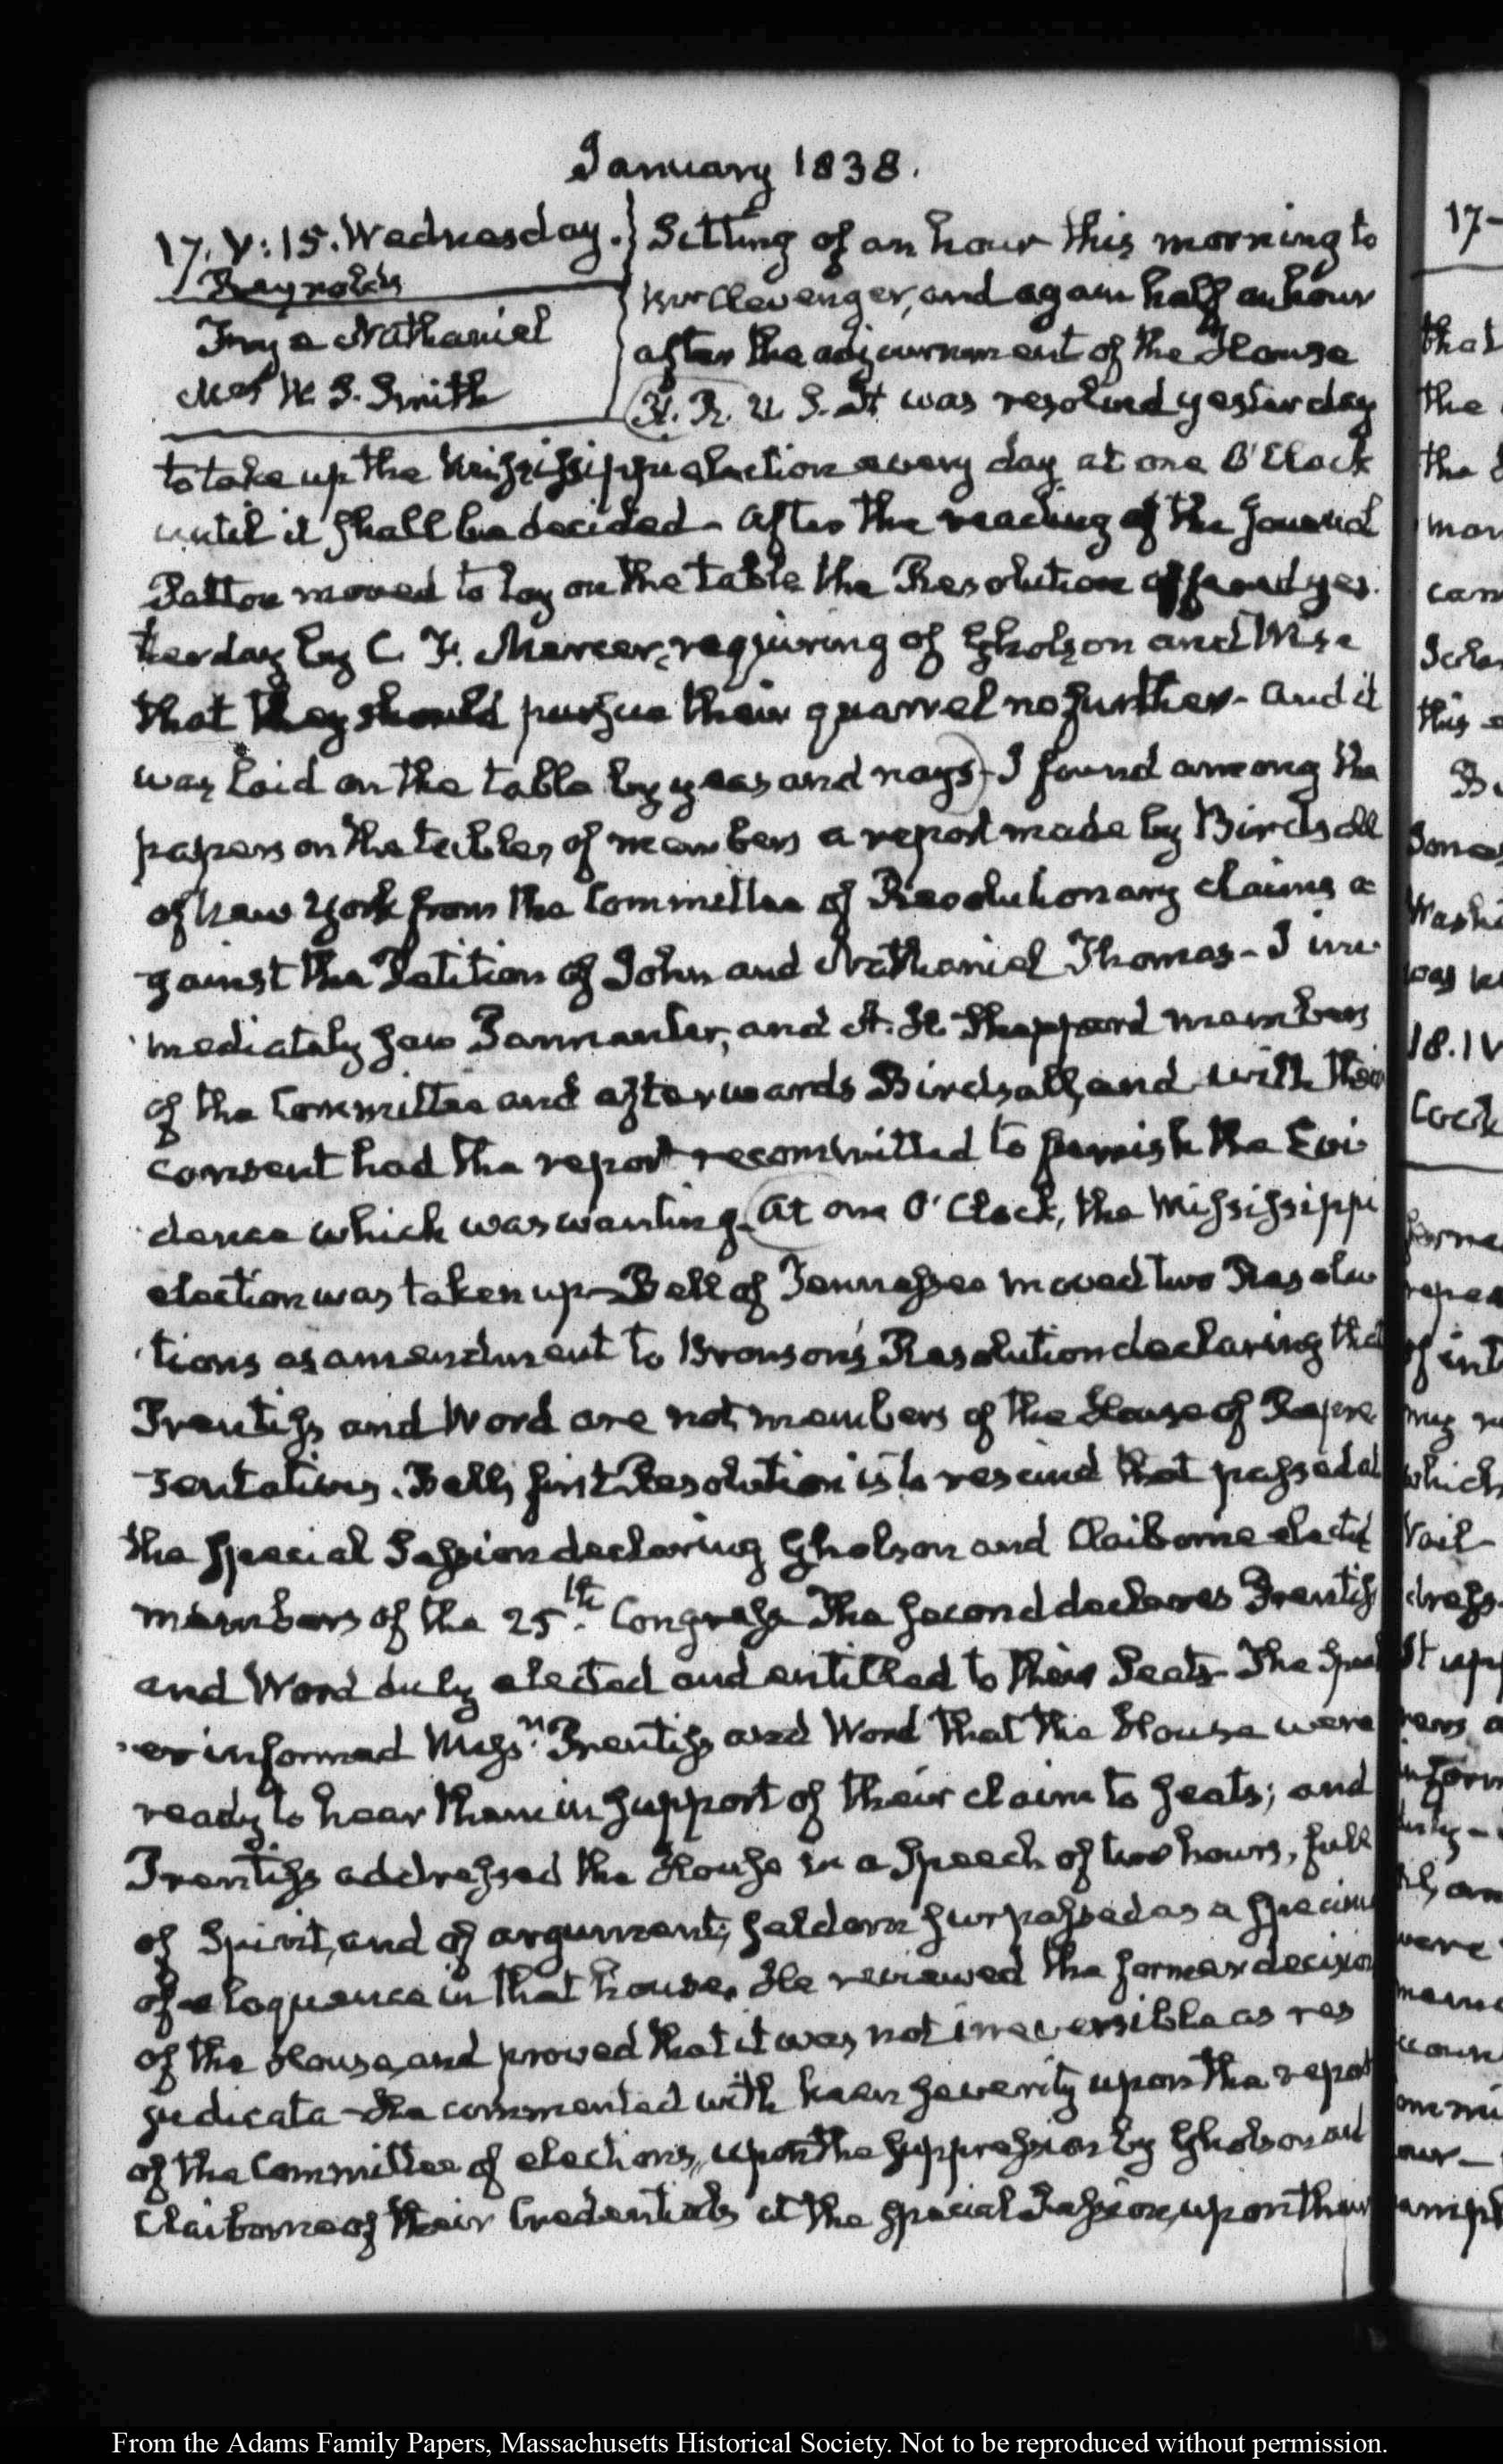 January 1838.
17. V:15. Wednesday.
Reynolds
Frye Nathaniel
Mrs W. S. Smith
Sitting of an hour this morning to
Mr Clevenger, and again half an hour
after the adjournment of the House
H. R. U. S. It was resolved yesterday
to take up the Mississippi election every day at one O'Clock
until it shall be decided. After the reading of the Journal
Patton moved to lay on the table the Resolution offered yes-
terday by C. F. Mercer, requiring of Gholson and Wise
that they should pursue their quarrel no further- and it
was laid on the table by yeas and nays- I found among the
papers on the tables of members a report made by Birdsall
of New York from the Committee of Revolutionary claims a
gainst the Petition of John and Nathaniel Thomas- I im
mediately saw Parmenter, and A. H. Shepperd members
of the Committee and afterwards Birdsall, and with their
consent had the report recommitted to furnish the Evi
dence which was wanting. At one O'Clock, the Mississippi
election was taken up- Bell of Tennessee moved two Resolu
tions as amendment to Bronson's Resolution declaring that
Prentiss and Word are not members of the House of Repre
sentatives. Bell's first Resolution is to rescind that passed at
the special Session declaring Gholson and Claiborne elected
members of the 25th. Congress The second declares Prentiss
and Word duly elected and entitled to their Seats- The Speak
er informed Messrs. Prentiss and Word that the House were
ready to hear them in support of their claim to seats; and
Prentiss addressed the House in a Speech of two hours, full
of Spirit, and of argument, seldom surpassed as a specimen
of eloquence in that house. He reviewed the former decision
of the House, and proved that it was not irreversible as res
judicata- He commented with keen severity upon the report
of the Committee of elections, upon the suppression by Gholson and
Claiborne of their Credentials at the special Session, upon their
From the Adams Family Papers, Massachusetts Historical Society. Not to be reproduced without permission.